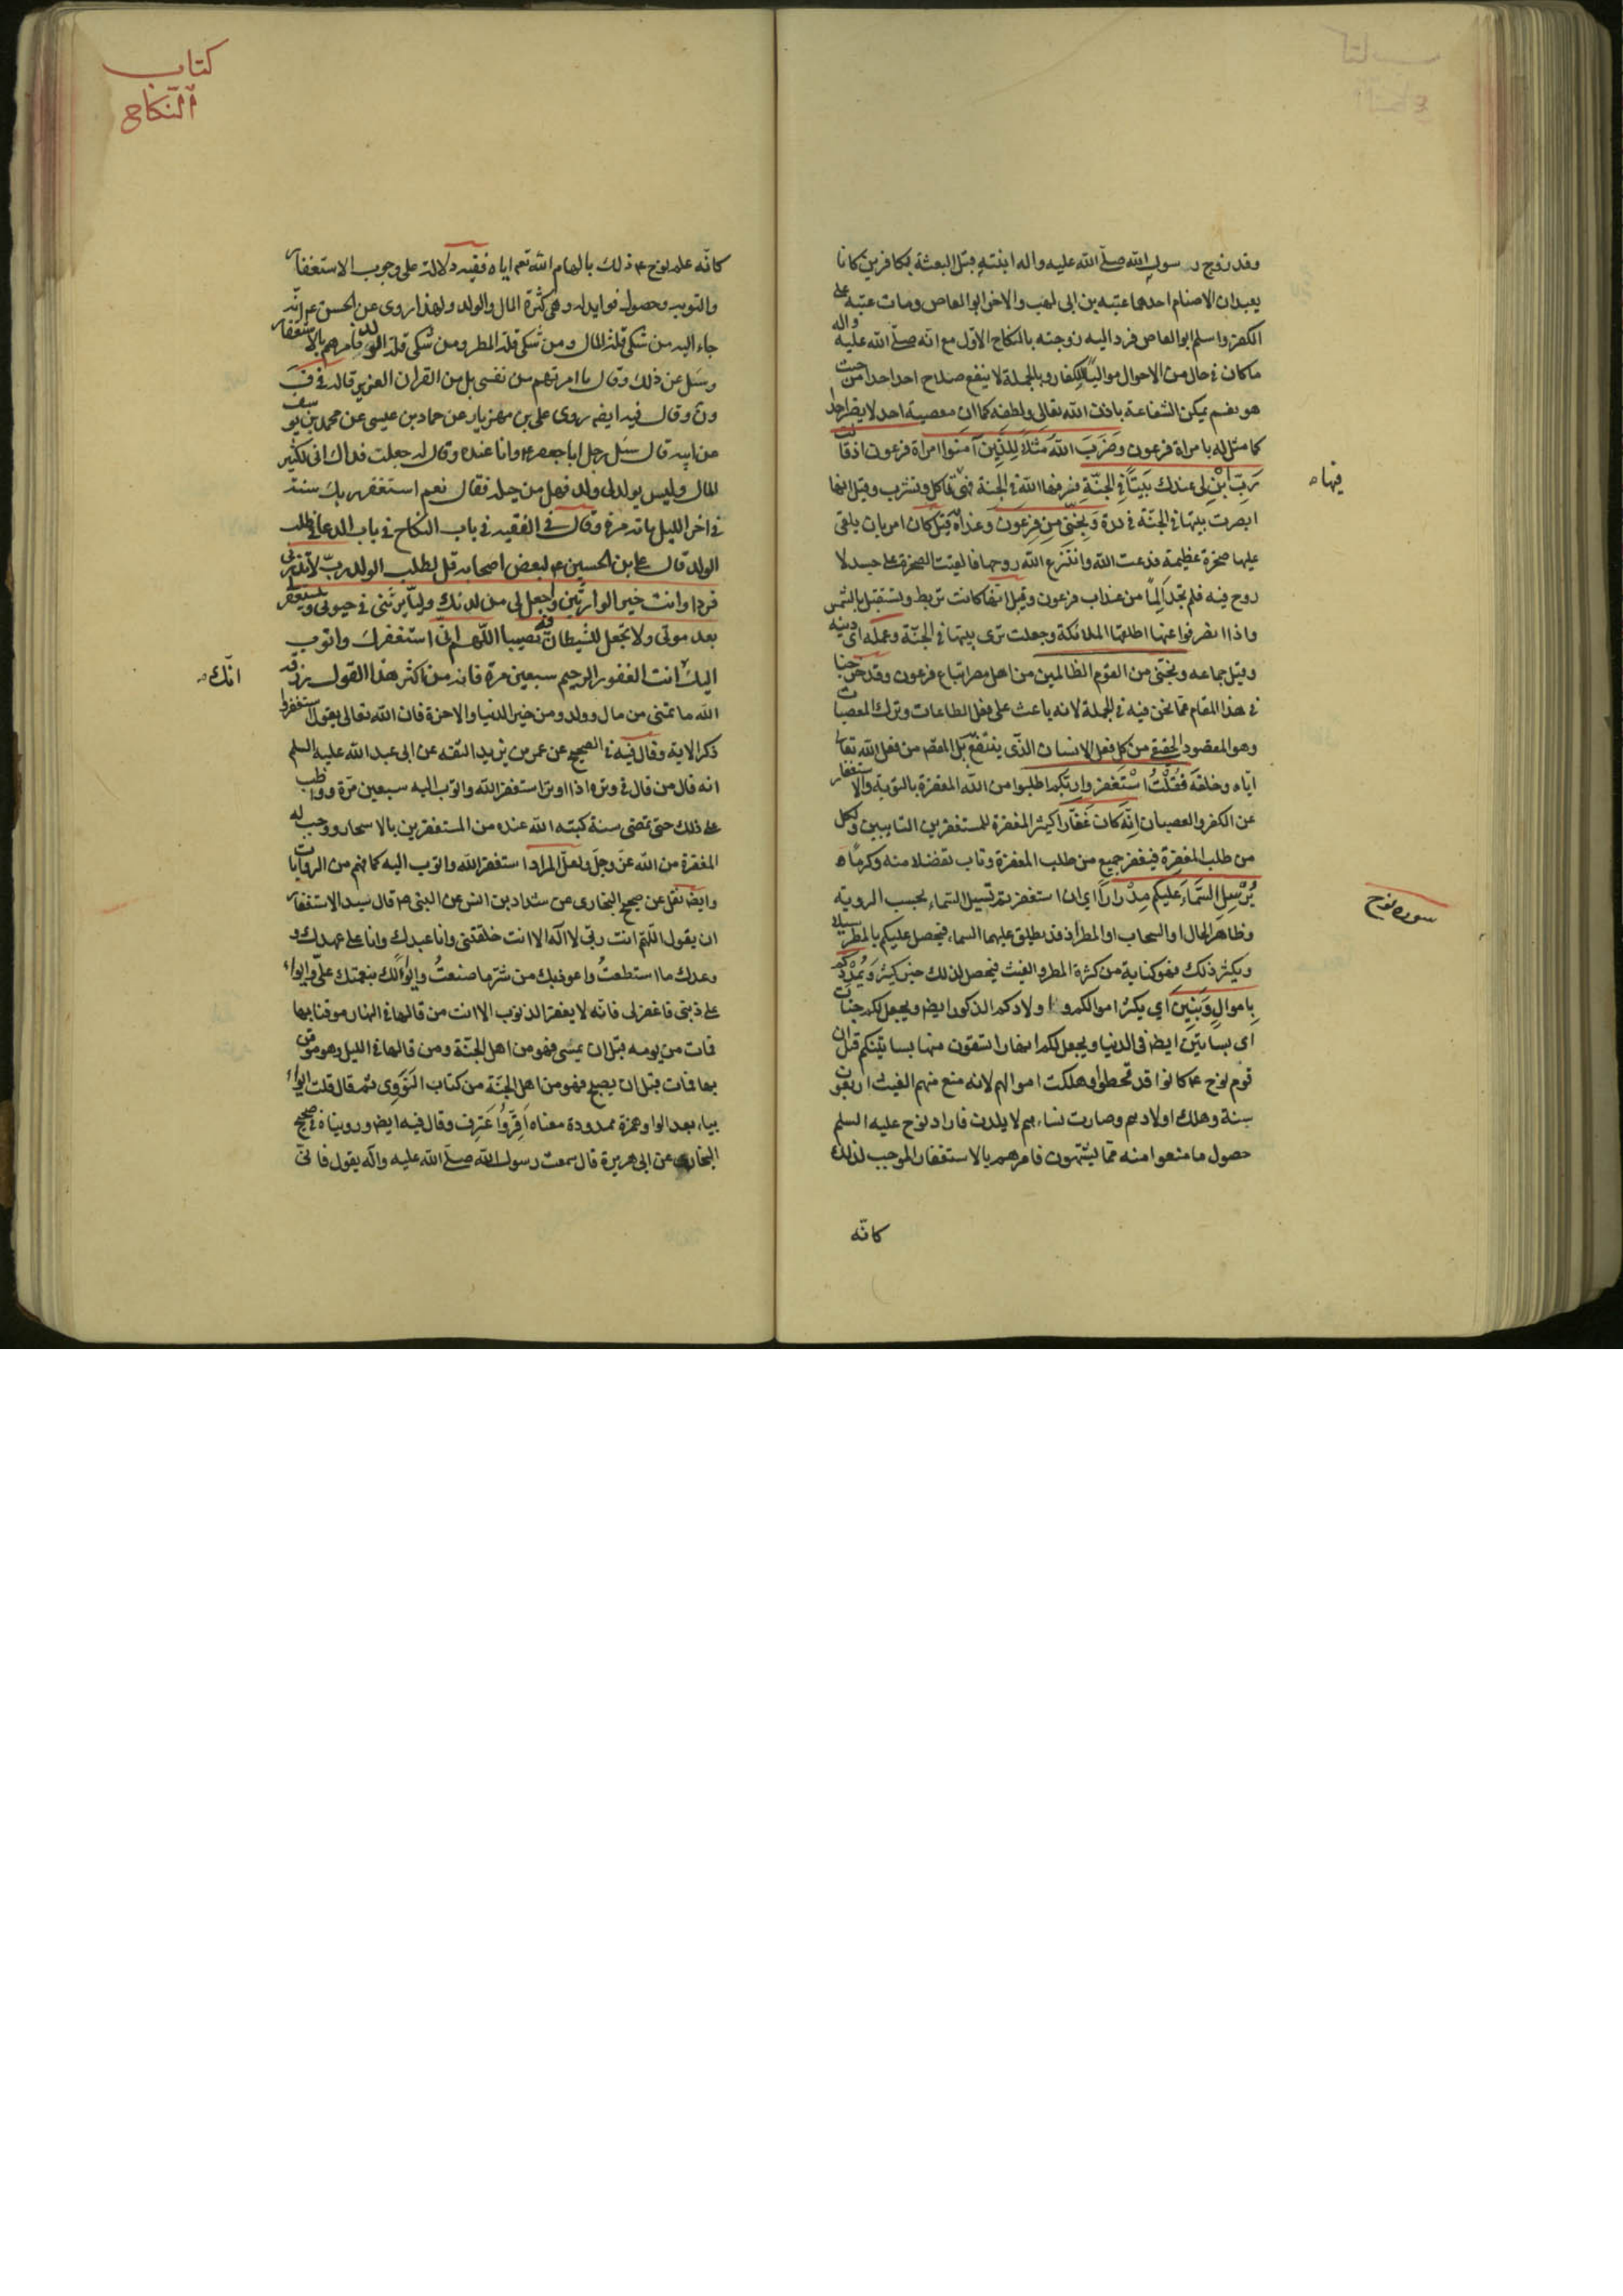 وقد زوج رسول الله صلى الله عليه واله ابنتيه قبل البعثة بكافرين كانا
يعبدان الاصنام احدهما عتبة بن ابى لهب والاخر ابو العاص ومات عتبة على
الكفر واسلم ابو العاص فرد اليه زوجته بالنكاح الاول مع انه صلى الله عليه واله
ماكان فى حال من الاحوال مواليا للكفار وبالجملة لا ينفع صلاح احد احدا من حيث
هو نعم يمكن الشفاعة باذن الله تعالى ولطفه كما ان معصية احد لا يضر احدا
كما مثل له بامراة فرعون وَضَرَبَ اللهُ مَثَلاً لِلَّذِينَ آمَنُوا امراة فرعون اذ قالت
رَبِّ ابْنِ لى عندك بَيتًا فى الجنّةِ فرفعها الله فى الجنة فهى تاكل وتشرب وقيل انها
فيها
ابصرت بيتها فى الجنّة فى درة وَنَجِّنى مِن فِرعَون وعذابه قيل كان امر بان يلقى
عليها صخرة عظيمة فدعت الله وانتزع الله روحها فالقيت الصخرة على جسد لا
روح فيه فلم تجد المًا من عذاب فرعون وقيل انها كانت تربط وتستقبل بالشمس
واذا انصرفوا عنها اظلتها الملائكة وجعلت ترى بيتها فى الجنّة وعمله اى دينه
وقيل جماعه ونجنى من القوم الظالمين من اهل مصر اتباع فرعون وقد خرجنا
فى هذا المقام عما نحن فيه فى الجملة لانه باعث على فعل الطاعات وترك المعصيات
وهو المقصود الحقيقى من كل فعل الانسان الذى ينتفع بل المقصد من فعل الله تعالى
اياه وخلقه فَقُلْتُ اسْتَغفِروا ربّكم اطلبوا من الله المغفرة بالتوبة والاستغفار
عن الكفر والعصيان اِنَّه كَانَ غَفّارًا كثير المغفرة للمستغفرين التايبين ولكل
من طلب المغفرة فيغفر جميع من طلب المغفرة وتاب تفضلا منه وكرمًا
سورة نوح
يُرْسِلِ السَّمَاءَ عَلَيكم مِدْرارًا اى ان استغفرتم تسيل السماء بحسب الروية
وظاهر الحال او السحاب او المطر اذ قد يطلق عليهما السماء فيحصل عليكم بالمطر سيلا
ويكثر ذلك فهو كناية من كثرة المطر والغيث فيحصل لذلك خير كثير وَيُمْدِدكم
بِاموالٍ وَبَنِينَ اى يكثر اموالكم واولادكم الذكور ايضا ويجعل لكم جنات
اى بساتين ايضا فى الدنيا ويجعل لكم انهارا تسقون منها بساتينكم قيل ان
قوم نوح ع كانوا قد قحطوا وهلكت اموالهم لانه منع منهم الغيث اربعون
سنة وهلك اولادهم وصارت نساءهم لا يلدن فاراد نوح عليه السلم
حصول ما منعوا منه مما يشتهون فامرهم بالاستغفار الموجب لذلك
كانّه
كتاب
النّكاح
كانّه علم نوح ع ذلك بالهام الله تعم اياه ففيه دلالة على وجوب الاستغفار
والتوبه وحصول فوايد له وهى كثرة المال والولد ولهذا روى عن الحسن ع انه
جاء اليه من شكى قلة المال ومن شكى قلة المطر ومن شكى قلة الولد فامرهم بالاستغفار
وسئل عن ذلك وقال ما امرتهم من نفسى بل من القران العزيز قاله فى ف
ون وقال فيه ايضه روى على بن مهزيار عن حماد بن عيسى عن محمد بن يوسف
عن ابيه قال سئل رجل ابا جعفر ع وانا عنده وقال له جعلت فداك انى لكثير
المال وليس يولد لى ولد فهل من حيلة فقال نعم استغفر ربك سنة
فى اخر الليل مائة مرة وقال فى الفقيه فى باب النكاح فى باب الدعا فى طلب
الولد قال على بن الحسين ع لبعض اصحابه قل لطلب الولد ربّ لا تذرنى
فردا وانت خير الوارثين واجعل لى من لدنك وليّا يرثنى فى حيوتى ويستغفر لى
بعد موتى ولا تجعل للشيطان فيه نصيبا اللهم انى استغفرك واتوب
اليك انت الغفور الرحيم سبعين مرة فانه من اكثر هذا القول رزقه
انّك
الله ما تمنى من مال وولد ومن خير الدنيا والاخرة فان الله تعالى يقول استغفروا
ذكر الاية وقال فيه فى الصحيح عن عمر بن يزيد الثقه عن ابى عبد الله عليه السلم
انه قال من قال فى وتره اذا اوتر استغفر الله واتوب اليه سبعين مرّة وواظب
على ذلك حتى تمضى سنة كتبه الله عنده من المستغفرين بالاسحار ووجب له
المغفرة من الله عزّ وجلّ ولعلّ المراد استغفر الله واتوب اليه كما فهم من الروايات
وايضا نقل عن صحيح البخارى عن شداد بن انس عن النبى ص قال سيد الاستغفار
ان يقول اللّهمّ انت ربّى لا اله الا انت خلقتنى وانا عبدك وانا على عهدك و
وعدك ما استطعتُ واعوذ بك من شر ما صنعتُ وابوءُ لك بنعمتك علىّ وابوءُ
على ذنبى فاغفر لى فانّه لا يغفر الذنوب الا انت من قالها فى النهار موقنا بها
فمات من يومه قبل ان يمسى فهو من اهل الجنّة ومن قالها فى الليل وهو موقن
بها فمات قبل ان يصبح فهو من اهل الجنّة من كتاب النووى ثم قال قلت ابوءُ
بباء بعد الواو همزة ممدودة معناه اَقِرُّ واَعتَرِف وقال فيه ايضا وروينا فى صحيح
البخارى عن ابى هريرة قال سمعت رسول الله صلى الله عليه واله يقول فانى